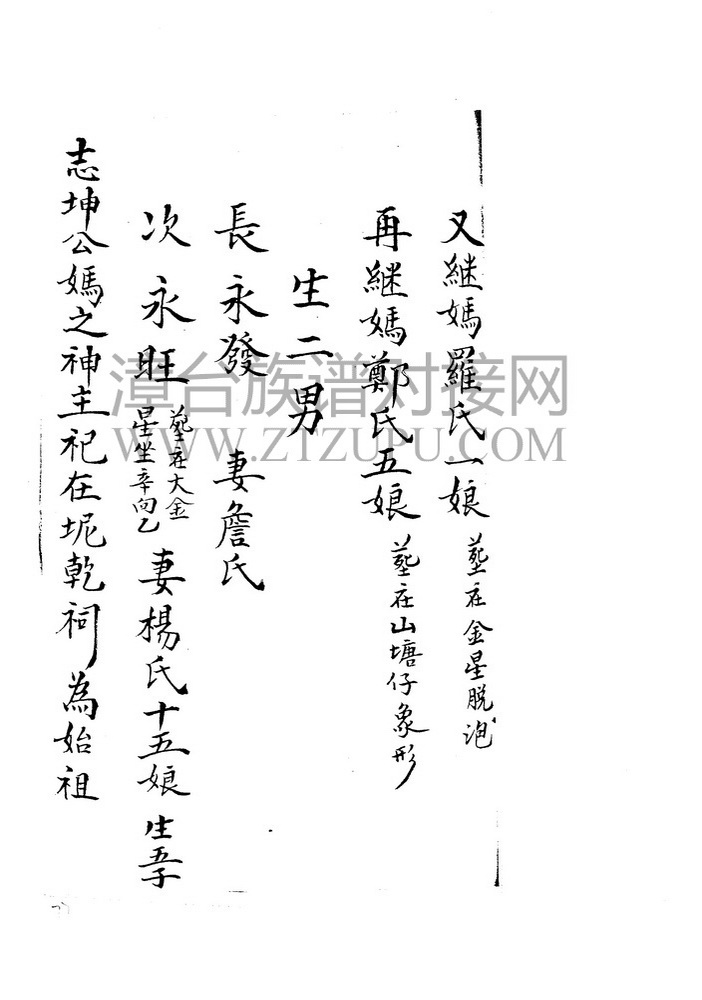 又継媽羅氏一娘 墓在金星脱泡
再継媽鄭氏五娘 墓在山塘仔象形
生二男
長永發 妻詹氏
次永旺 墓在大金星坐辛向乙 妻楊氏十五娘 生五子
志坤公媽之神主祀在坭乾祠為始祖
漳台族谱对接网
WWW.ZTZUPU.COM